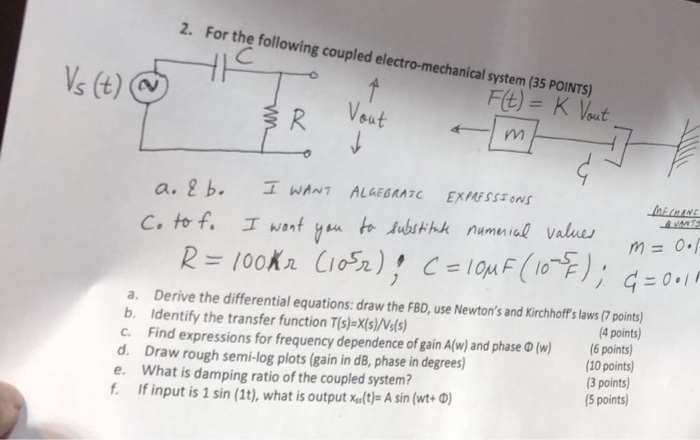 2. For the following coupled electro-mechanical system (35 POINTS)
C
Vs (t)
R
Vout
F(t) = K Vout
m
a. & b. I WANT ALGEBRAIC EXPRESSIONS
C. to f. I want you to substitute numerical values
m = 0.1
R = 100KΩ (10⁵Ω); C = 10μF (10⁻⁵F); G = 0.1
a. Derive the differential equations: draw the FBD, use Newton's and Kirchhoff's laws (7 points)
b. Identify the transfer function T(s)=X(s)/Vs(s) (4 points)
c. Find expressions for frequency dependence of gain A(w) and phase Φ (w) (6 points)
d. Draw rough semi-log plots (gain in dB, phase in degrees) (10 points)
e. What is damping ratio of the coupled system? (3 points)
f. If input is 1 sin (1t), what is output xss(t)= A sin (wt+ Φ) (5 points)